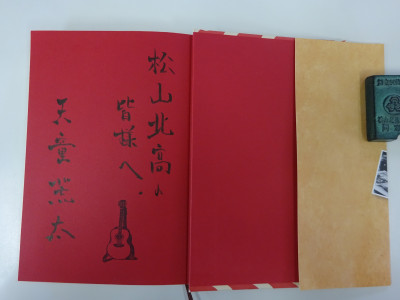 松山北高の
皆様へ。
天童荒太